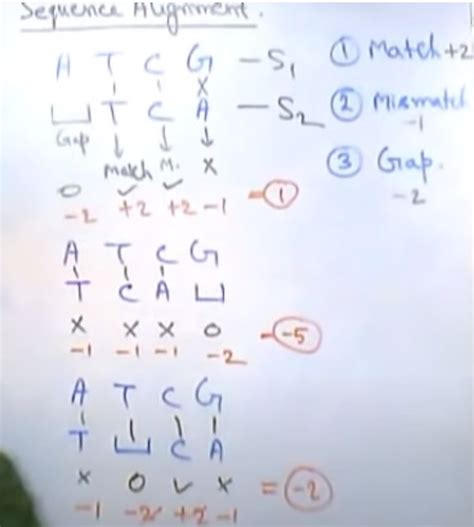 Sequence Alignment.
A T C G - S1 ① Match +2
x
⎵ T C A - S2 ② Mismatch -1
Gap ↓ ↓ ↓
Match M. x ③ Gap. -2
0 ✓ ✓
-2 +2 +2 -1 = 1
A T C G
T C A ⎵
x x x 0
-1 -1 -1 -2 = -5
A T C G
T ⎵ C A
x 0 ✓ x = -2
-1 -2 +2 -1